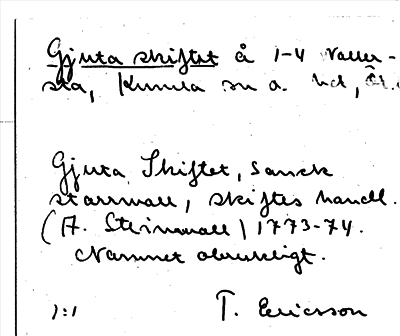 Gjuta skiftet å 1-4 Valler-
sta, Kumla sn o. hd, Ör.
Gjuta Skiftet, sanck
starrwall, skiftes handl.
(A. Steinwall) 1773-74.
Namnet obrukligt.
1:1 T. Ericsson